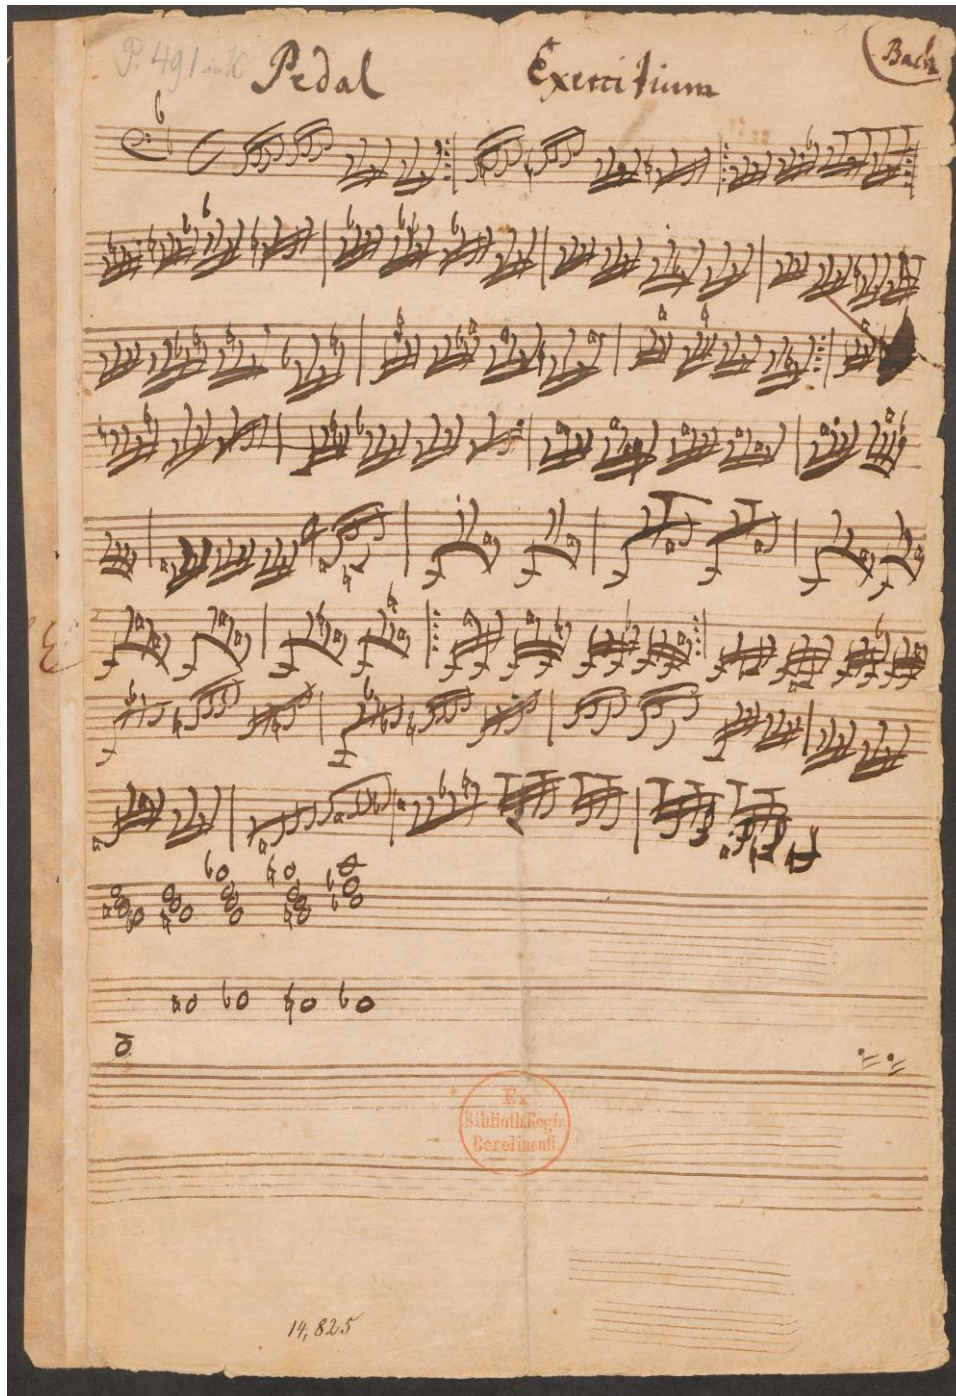 P. 491
Pedal Exercitium
Bach
Ex
Biblioth. Regia
Berolinensi.
14,825